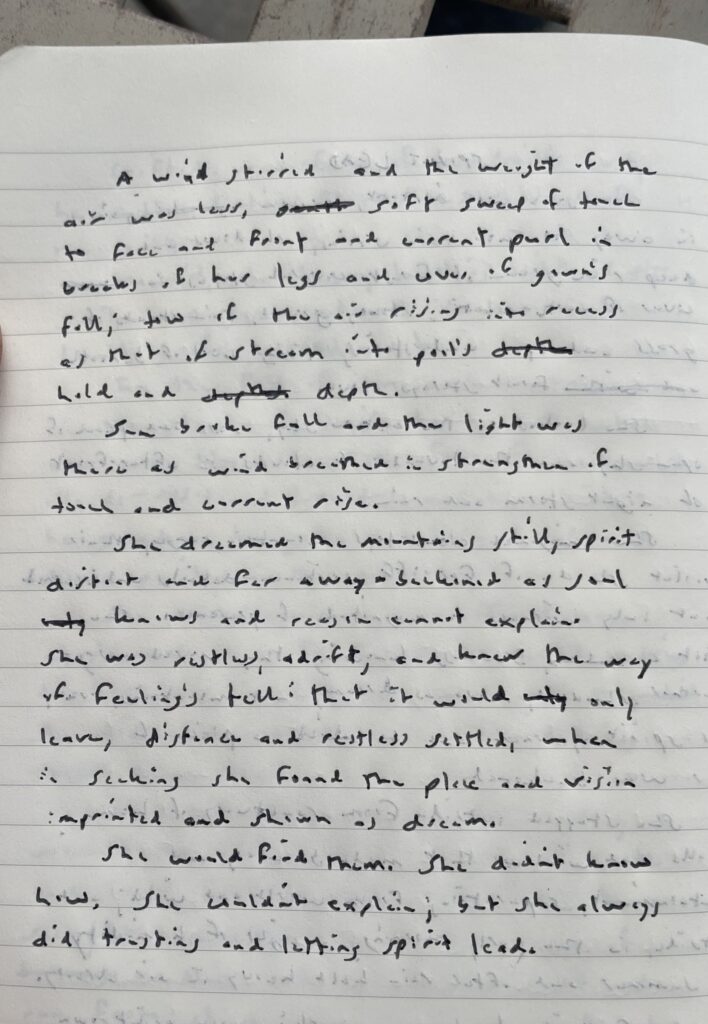 A wind stirred and the weight of the
air was less, soft sweep of touch
to face and front and current purl in
breaks of her legs and over of gown's
fall; tow of the air rising into recess
as that of stream into pool's depth
hold and depth.
Sun broke full and the light was
there as wind breathed in strengthen of
touch and current rise.
She dreamed the mountains still, spirit
distant and far away - beckoned as soul
only knows and reason cannot explain.
She was restless, adrift, and knew the way
of feeling's tell: that it would only only
leave, distance and restless settled, when
in seeking she found the place and vision
imprinted and shown as dream.
She would find them. She didn't know
how, she couldn't explain; but she always
did trusting and letting spirit lead.